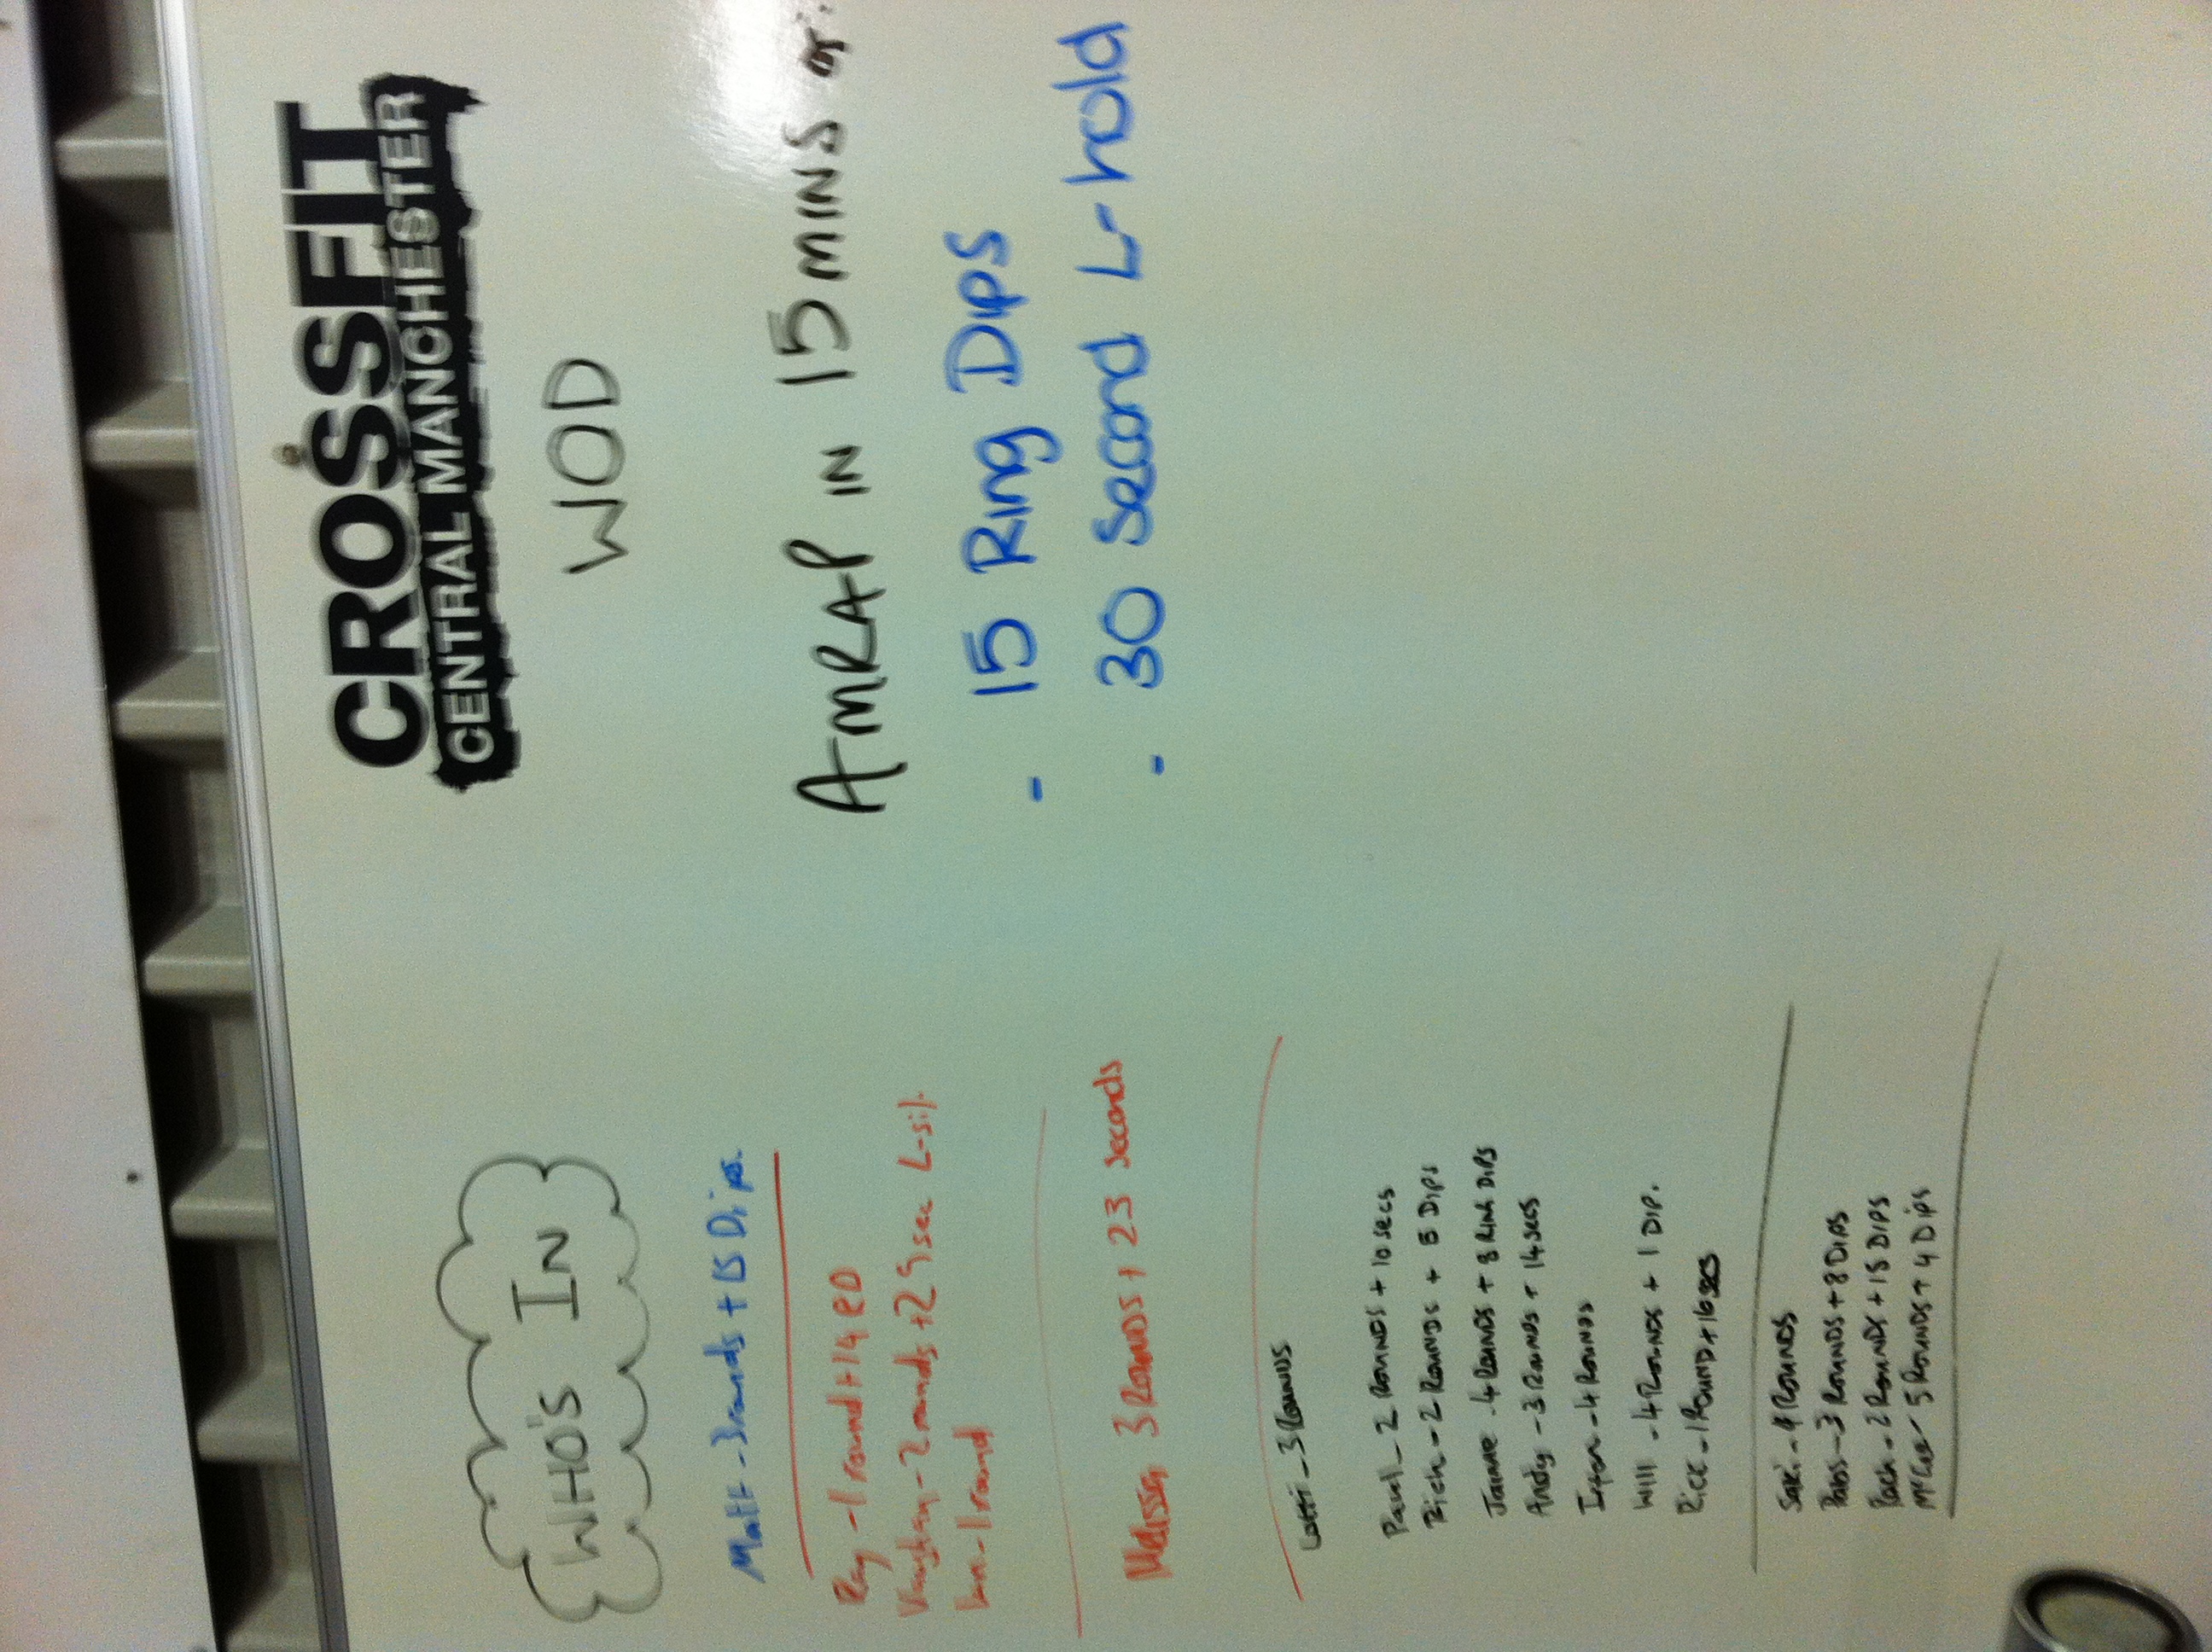 CROSSFIT
CENTRAL MANCHESTER
WOD
AMRAP IN 15 MINS of:
- 15 Ring Dips
- 30 Second L-hold
WHO'S IN
Matt - 3 rounds + 15 Dips.
Ray - 1 round + 14 RD
Vaughan - 2 rounds + 29 sec L-sit.
- 1 round
Melissa 3 ROUNDS + 23 seconds
Lotti - 3 ROUNDS
Paul - 2 ROUNDS + 10 secs
Rich - 2 ROUNDS + 5 DIPS
Jaime - 4 ROUNDS + 8 RING DIPS
Andy - 3 ROUNDS + 14 secs
- 4 ROUNDS
Will - 4 ROUNDS + 1 DIP.
Rick - 1 ROUND + 16 secs
Saki - 4 ROUNDS
- 3 ROUNDS + 8 DIPS
Rach - 2 ROUNDS + 15 DIPS
- 5 ROUNDS + 4 DIPS